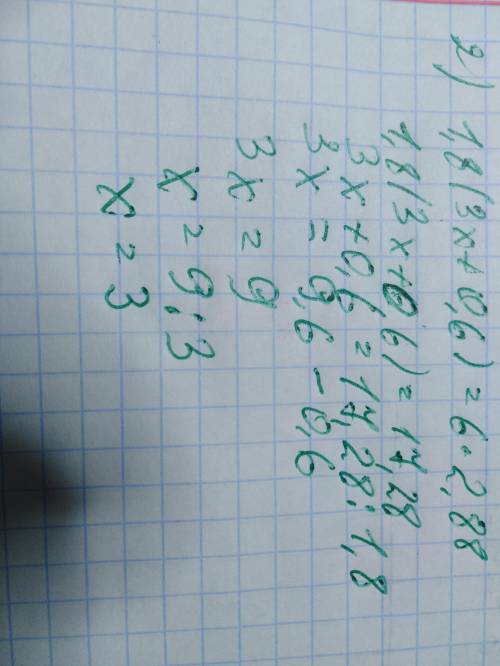 2) 1,8(3x+0,6)=6·2,88
1,8(3x+0,6)=17,28
3x+0,6=17,28:1,8
3x=9,6-0,6
3x=9
x=9:3
x=3